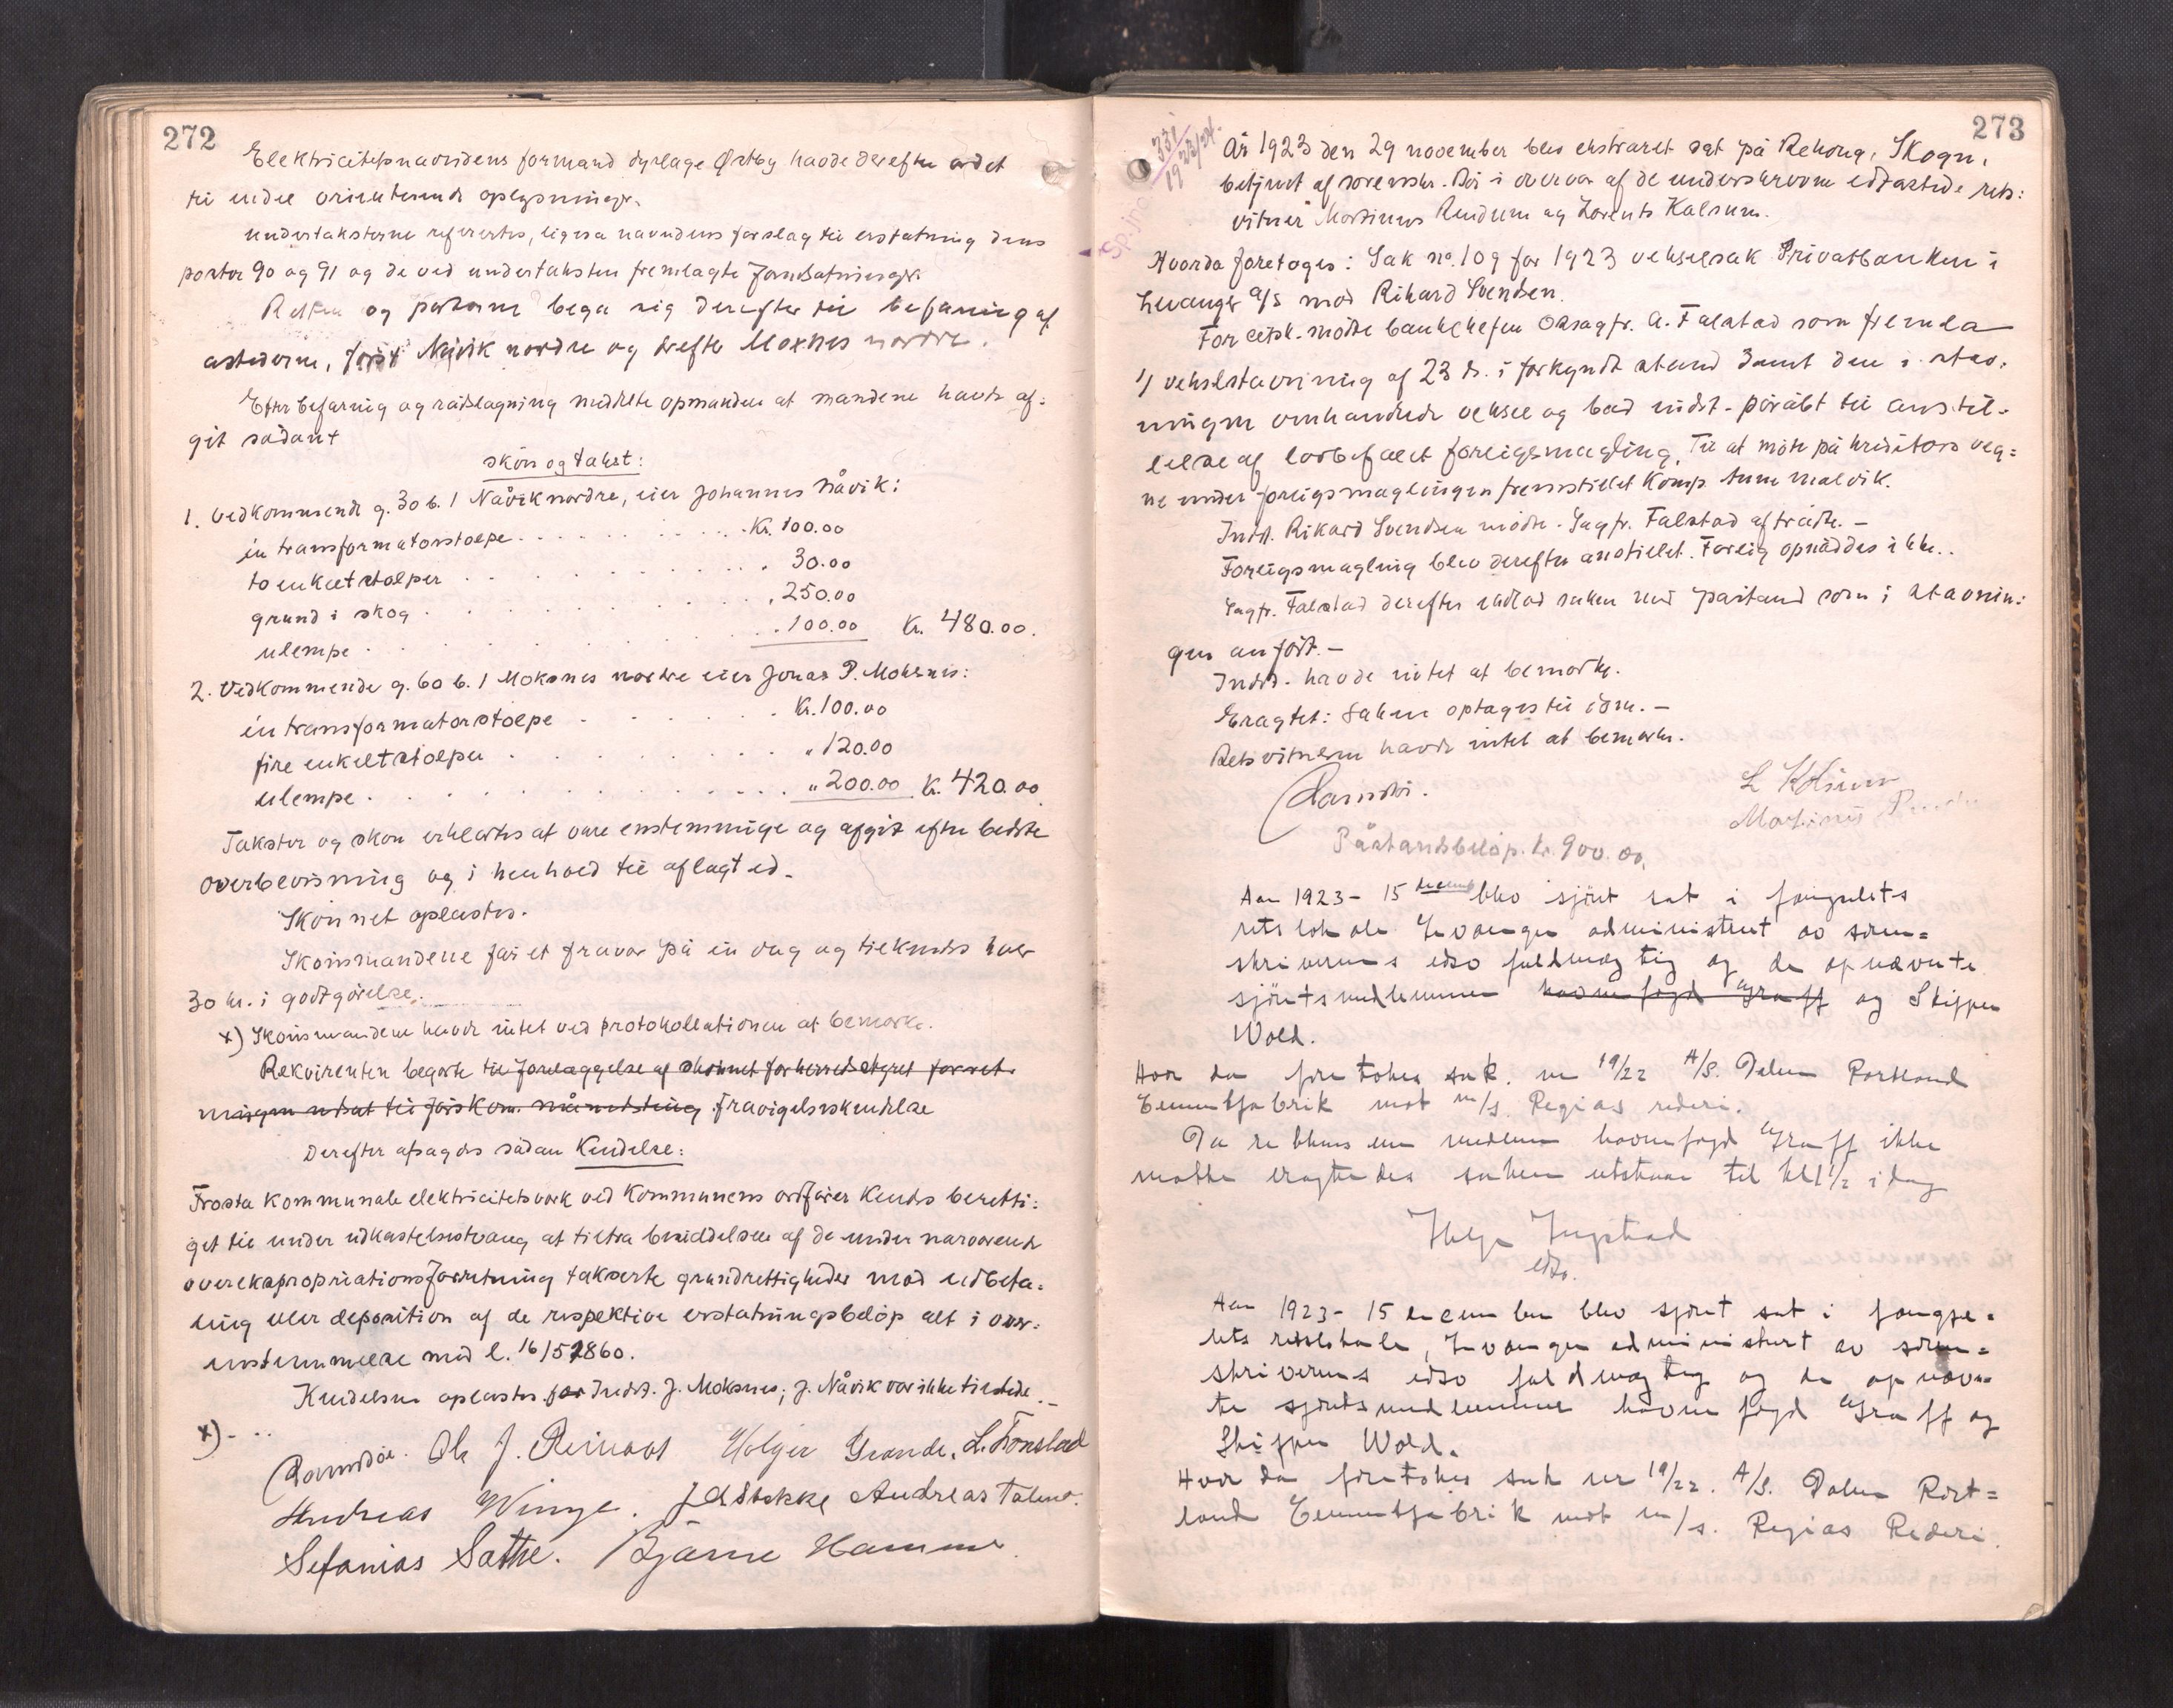 272
Elektricitetsnævndens formand dyrlæge Østby havde derefter ordet
til endel orienterende oplysninger.
Undertaksterne refereredes, ligesa nævndens forslag til erstatning dens
poster 90 og 91 og de ved undertaksten fremlagte forutsætninger.
Retten og parterne bega sig derefter til befaring af
åstederne, først Nåvik nordre og derefter Moxnes nordre.
Efter befaring og rådslagning meddelte opmanden at mændene havde af-
git sådant
skön og takst:
1. Vedkommende g. 30 b. 1 Nåvik nordre, eier Johannes Nåvik:
en transformatorstolpe . . . Kr. 100.00
to enkeltstolper . . . " 30.00
grund i skog . . . " 250.00
ulempe . . . " 100.00 Kr. 480.00.
2. Vedkommende g. 60 b. 1 Moksnes nordre eier Jonas P. Moksnes:
en transformatorstolpe . . . Kr. 100.00
fire enkeltstolper . . . " 120.00
ulempe . . . " 200.00 Kr. 420.00
Takster og skön erklærtes at være enstemmige og afgit efter bedste
overbevisning og i henhold til aflagt ed.
Skönnet oplæstes.
Skönsmændene får et fravær på en dag og tilkendes hver
30 kr. i godtgörelse.
x) Skönsmændene havde intet ved protokollationen at bemærke.
Rekvirenten begærte til forelæggelse af skönnet for herredstyret forret-
ningen utsat til förskom. månedsting fravigelseskendelse
Derefter afsagdes sådan Kendelse:
Frosta kommunale elektricitetsverk ved kommunens ordförer kendes beretti-
get til under udkastelsestvang at tiltræ besiddelsen af de under nærværende
overekspropriationsforretning takserte grundrettigheder mod udbeta-
ling eller deposition af de respektive erstatningsbelöp alt i over-
ensstemmelse med l. 16/5 1860.
Kendelsen oplæstes for Indst. J. Moksnes; J. Nåvik var ikke tilstede.
x) - ..
Ramsöi. Ole J. Reinaas Holger Grande. L. Tronstad
Andreas Winge. J A Stokke Andreas Tolmo.
Sefanias Sæthre. Bjarne Hammer
273
331/1923/24.
Sp.jno
År 1923 den 29 november blev ekstraret sat på Rekong, Skogn,
betjent af sorenskr. Böi i overvær af de underskrevne edfæstede rets-
vitner Martinus Reidum og Lorents Kalsum.
Hvorda foretoges: Sak no. 109 for 1923 vekselsak Privatbanken i
Levanger a/s mod Rikard Svendsen.
For citst. mötte bankchefen O.R.sagfr. A. Falstad som fremla
1) vekselstævning af 23 ds. i forkyndt stand samt den i stæv-
ningen omhandlede veksel og bad indst. påråbt til anstil-
lelse af lovbefalet forligsmægling. Til at möte på kreditors veg-
ne under forligsmæglingen fremstillet Komp. Arne Malvik.
Indst. Rikard Svendsen mödte. Sagfr. Falstad aftrådte. -
Forligsmægling blev derefter anstillet. Forlig opnåddes ikke..
Sagfr. Falstad derefter indlod saken med påstand som i stævnin-
gen anfört. -
Indst. havde intet at bemerke.
Eragtet: Saken optages til döm. -
Retsvitnerne havde intet at bemerke.
Ramsöi.
L Kolsum
Martinus
Påstandsbelöp. kr. 900.00.
Aar 1923 - 15 decemb blev sjöret sat i fængslets
retslokale Levanger administrert av soren-
skriverens edsv fuldmægtig og de opnævnte
sjöretsmedlemmer havnefogd Graff og Skipper
Wold.
Hvor da foretokes sak. nr 19/22 A/S. Dalen Portland
Cementfabrik mot m/s. Regias rederi.
Da rettens ene medlem havnefogd Graff ikke
mötte eragtedes saken utstaar til kl 1 1/2 idag
Helge Ingstad
edsv.
Aar 1923 - 15 december blev sjöret sat i fængse-
lets retslokale, Levanger administrert av soren-
skriverens edsv fuldmægtig og de opnævn-
te sjöretsmedlemmer havnefogd Graff og
Skipper Wold.
Hvor da foretokes sak nr 19/22. A/S. Dalen Port-
land Cementfabrik mot m/s. Regias Rederi.